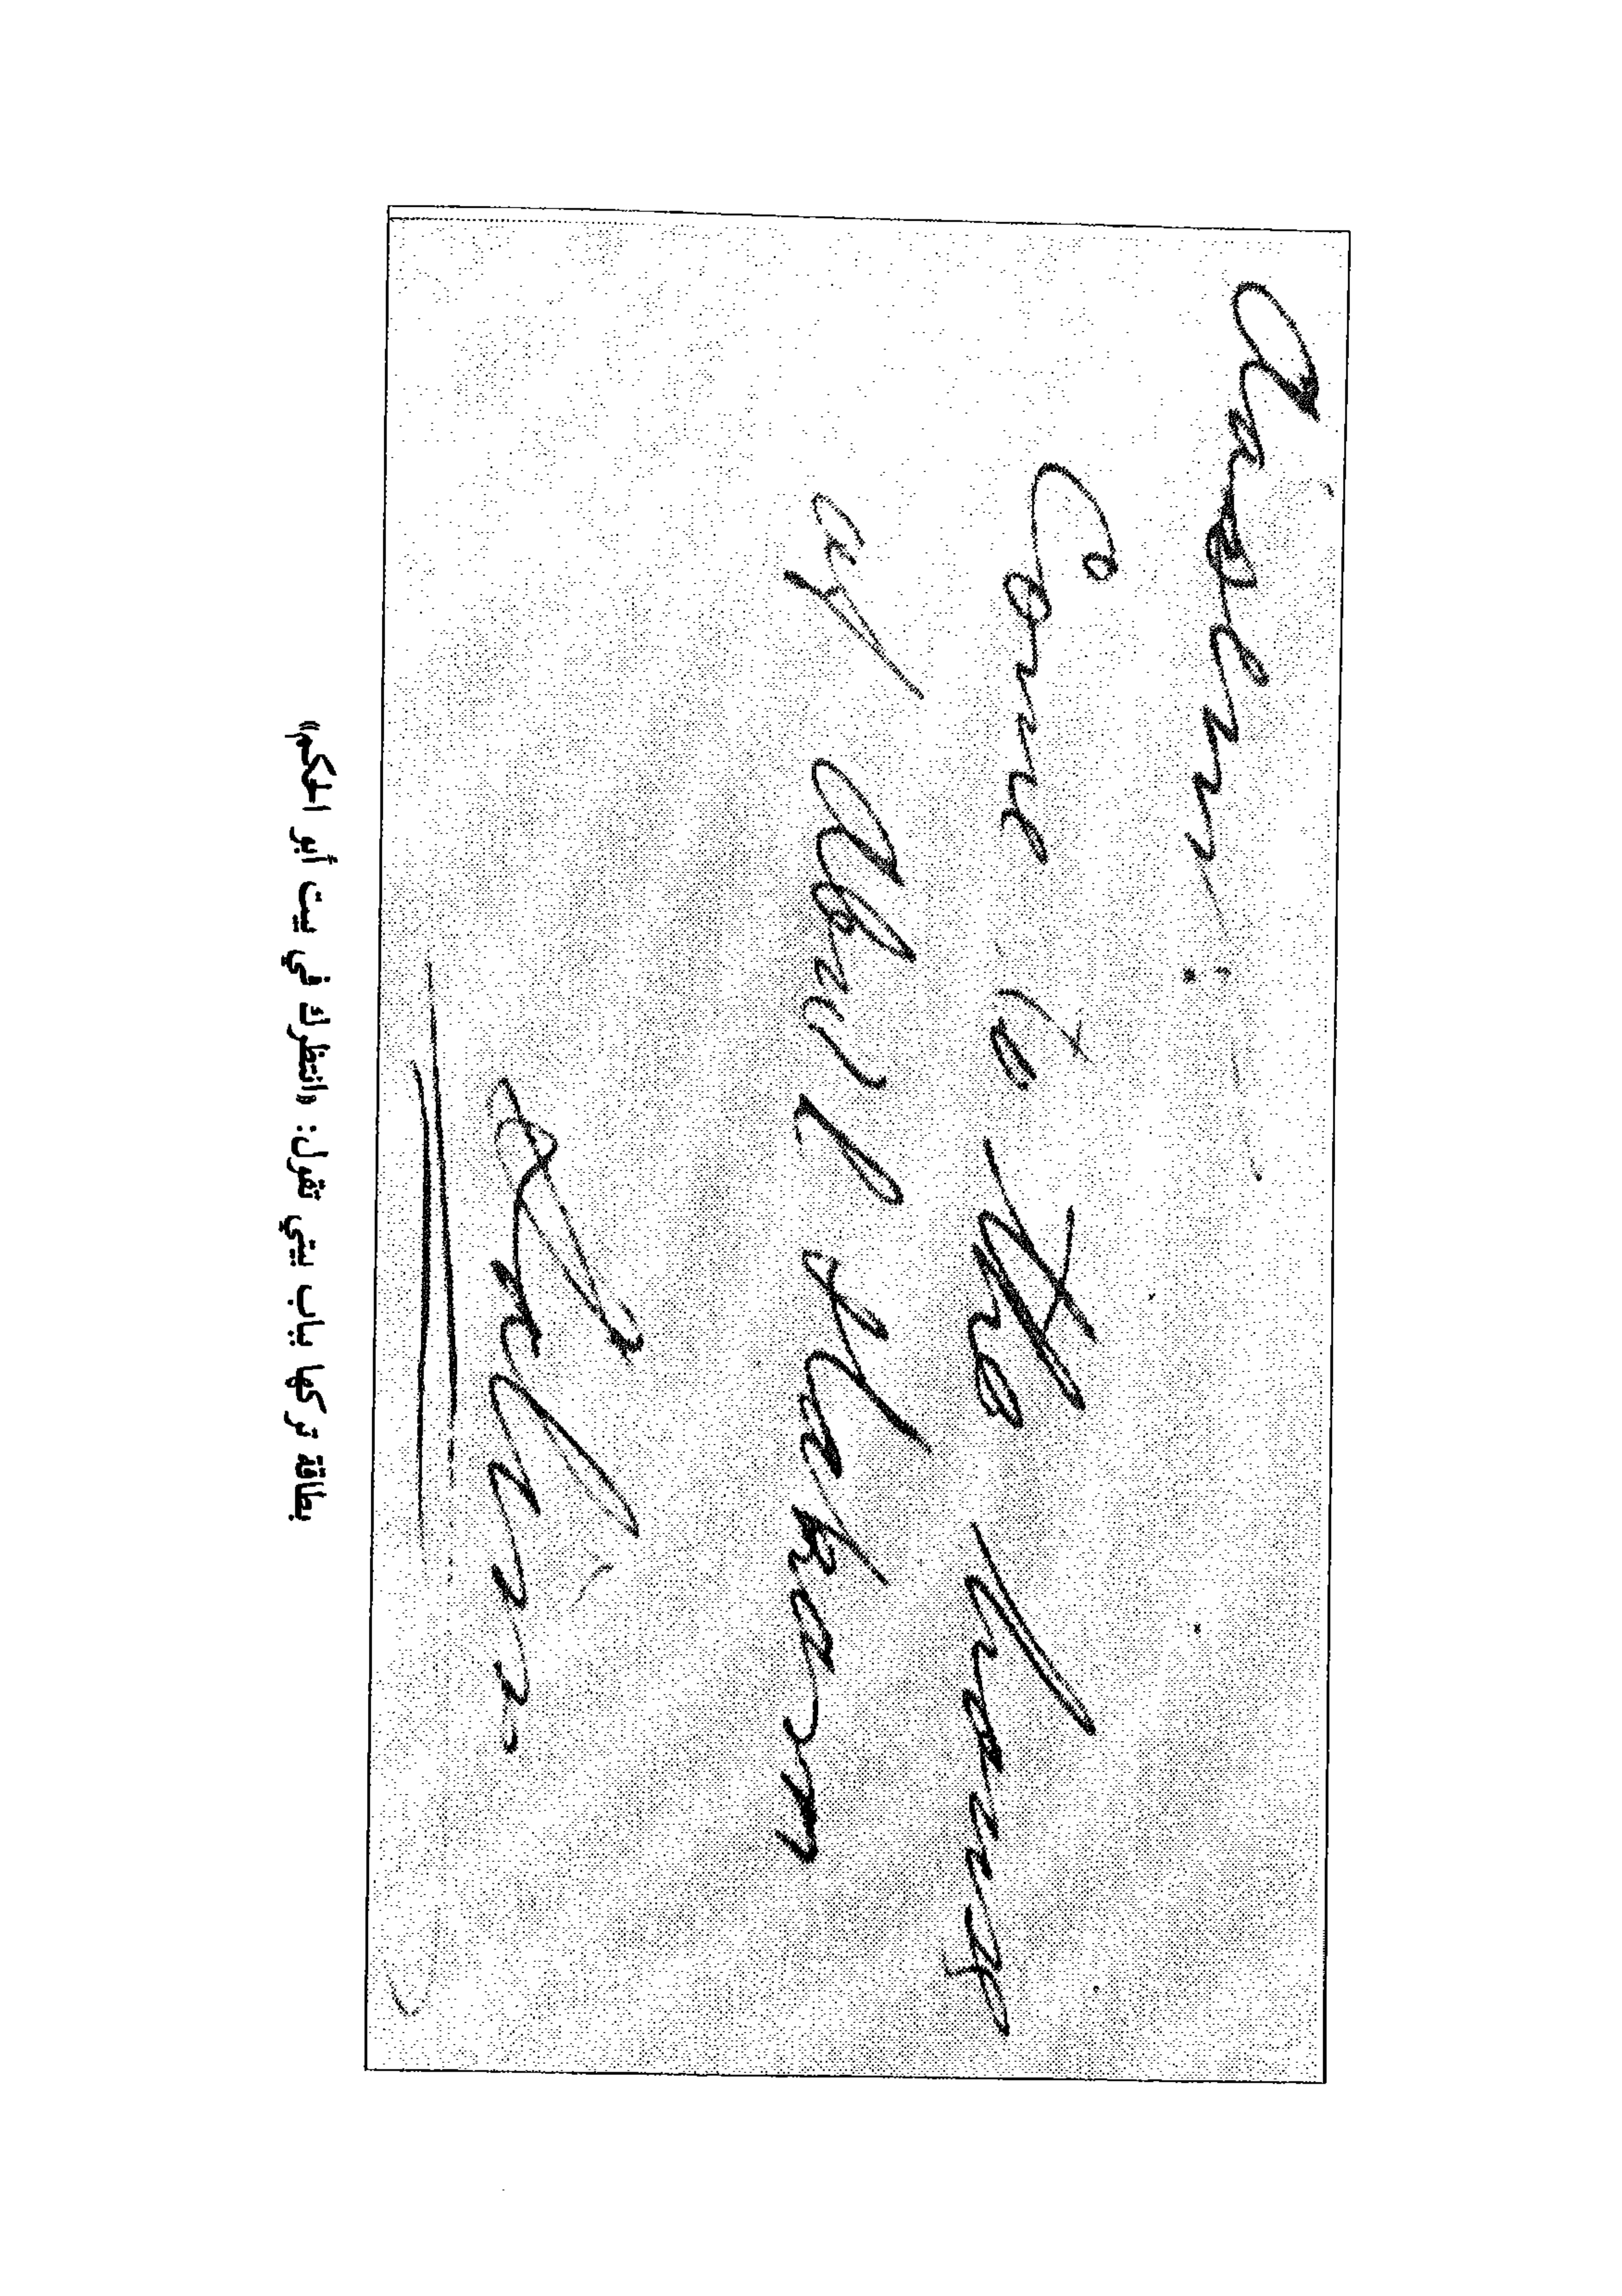 Come to the house
of Abul Hakam
بطاقة تركها بباب بيتي تقول: «انتظرك في بيت أبو الحكم»